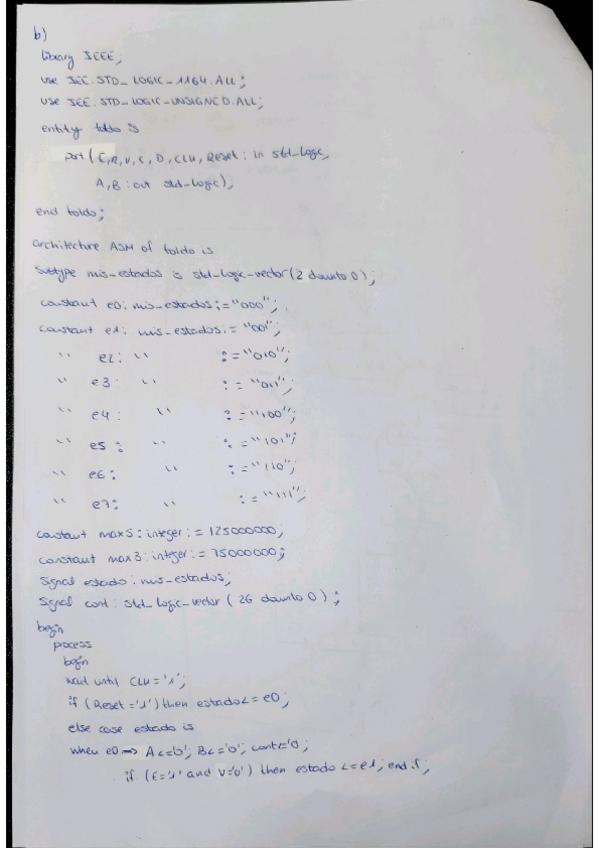 b)
library IEEE;
use IEE.STD_LOGIC_1164.ALL;
use IEE.STD_LOGIC_UNSIGNED.ALL;
entity toldo is
port(E,R,V,C,D,CLK,Reset: in std_logic,
A,B: out std_logic);
end toldo;
architecture ASM of toldo is
Subtype mis_estados is std_logic_vector(2 downto 0);
constant e0: mis_estados:="000";
constant e1: mis_estados:= "001";
" e2: " :="010";
" e3: " := "011";
" e4: " := "100";
" e5: " := "101";
" e6: " := "110";
" e7: " := "111";
constant max5: integer:= 125000000;
constant max3: integer:= 75000000;
Signal estado: mis_estados;
Signal cont: std_logic_vector (26 downto 0);
begin
process
begin
wait until CLK='1';
if (Reset='1') then estado<=e0;
else case estado is
when e0=> A<='0'; B<='0'; cont<='0;
if (E='1' and V='0') then estado <=e1; end if;